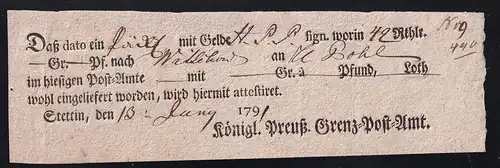 Daß dato ein mit Gelde H. P. P. sign. worin 42 Rthlr.
—Gr.— Pf. nach an
im hiesigen Post-Amte — mit — Gr. à — Pfund, — Loth
wohl eingeliefert worden, wird hiermit attestiret.
Stettin, den 13 Juny 1791
Königl. Preuß. Grenz-Post-Amt.